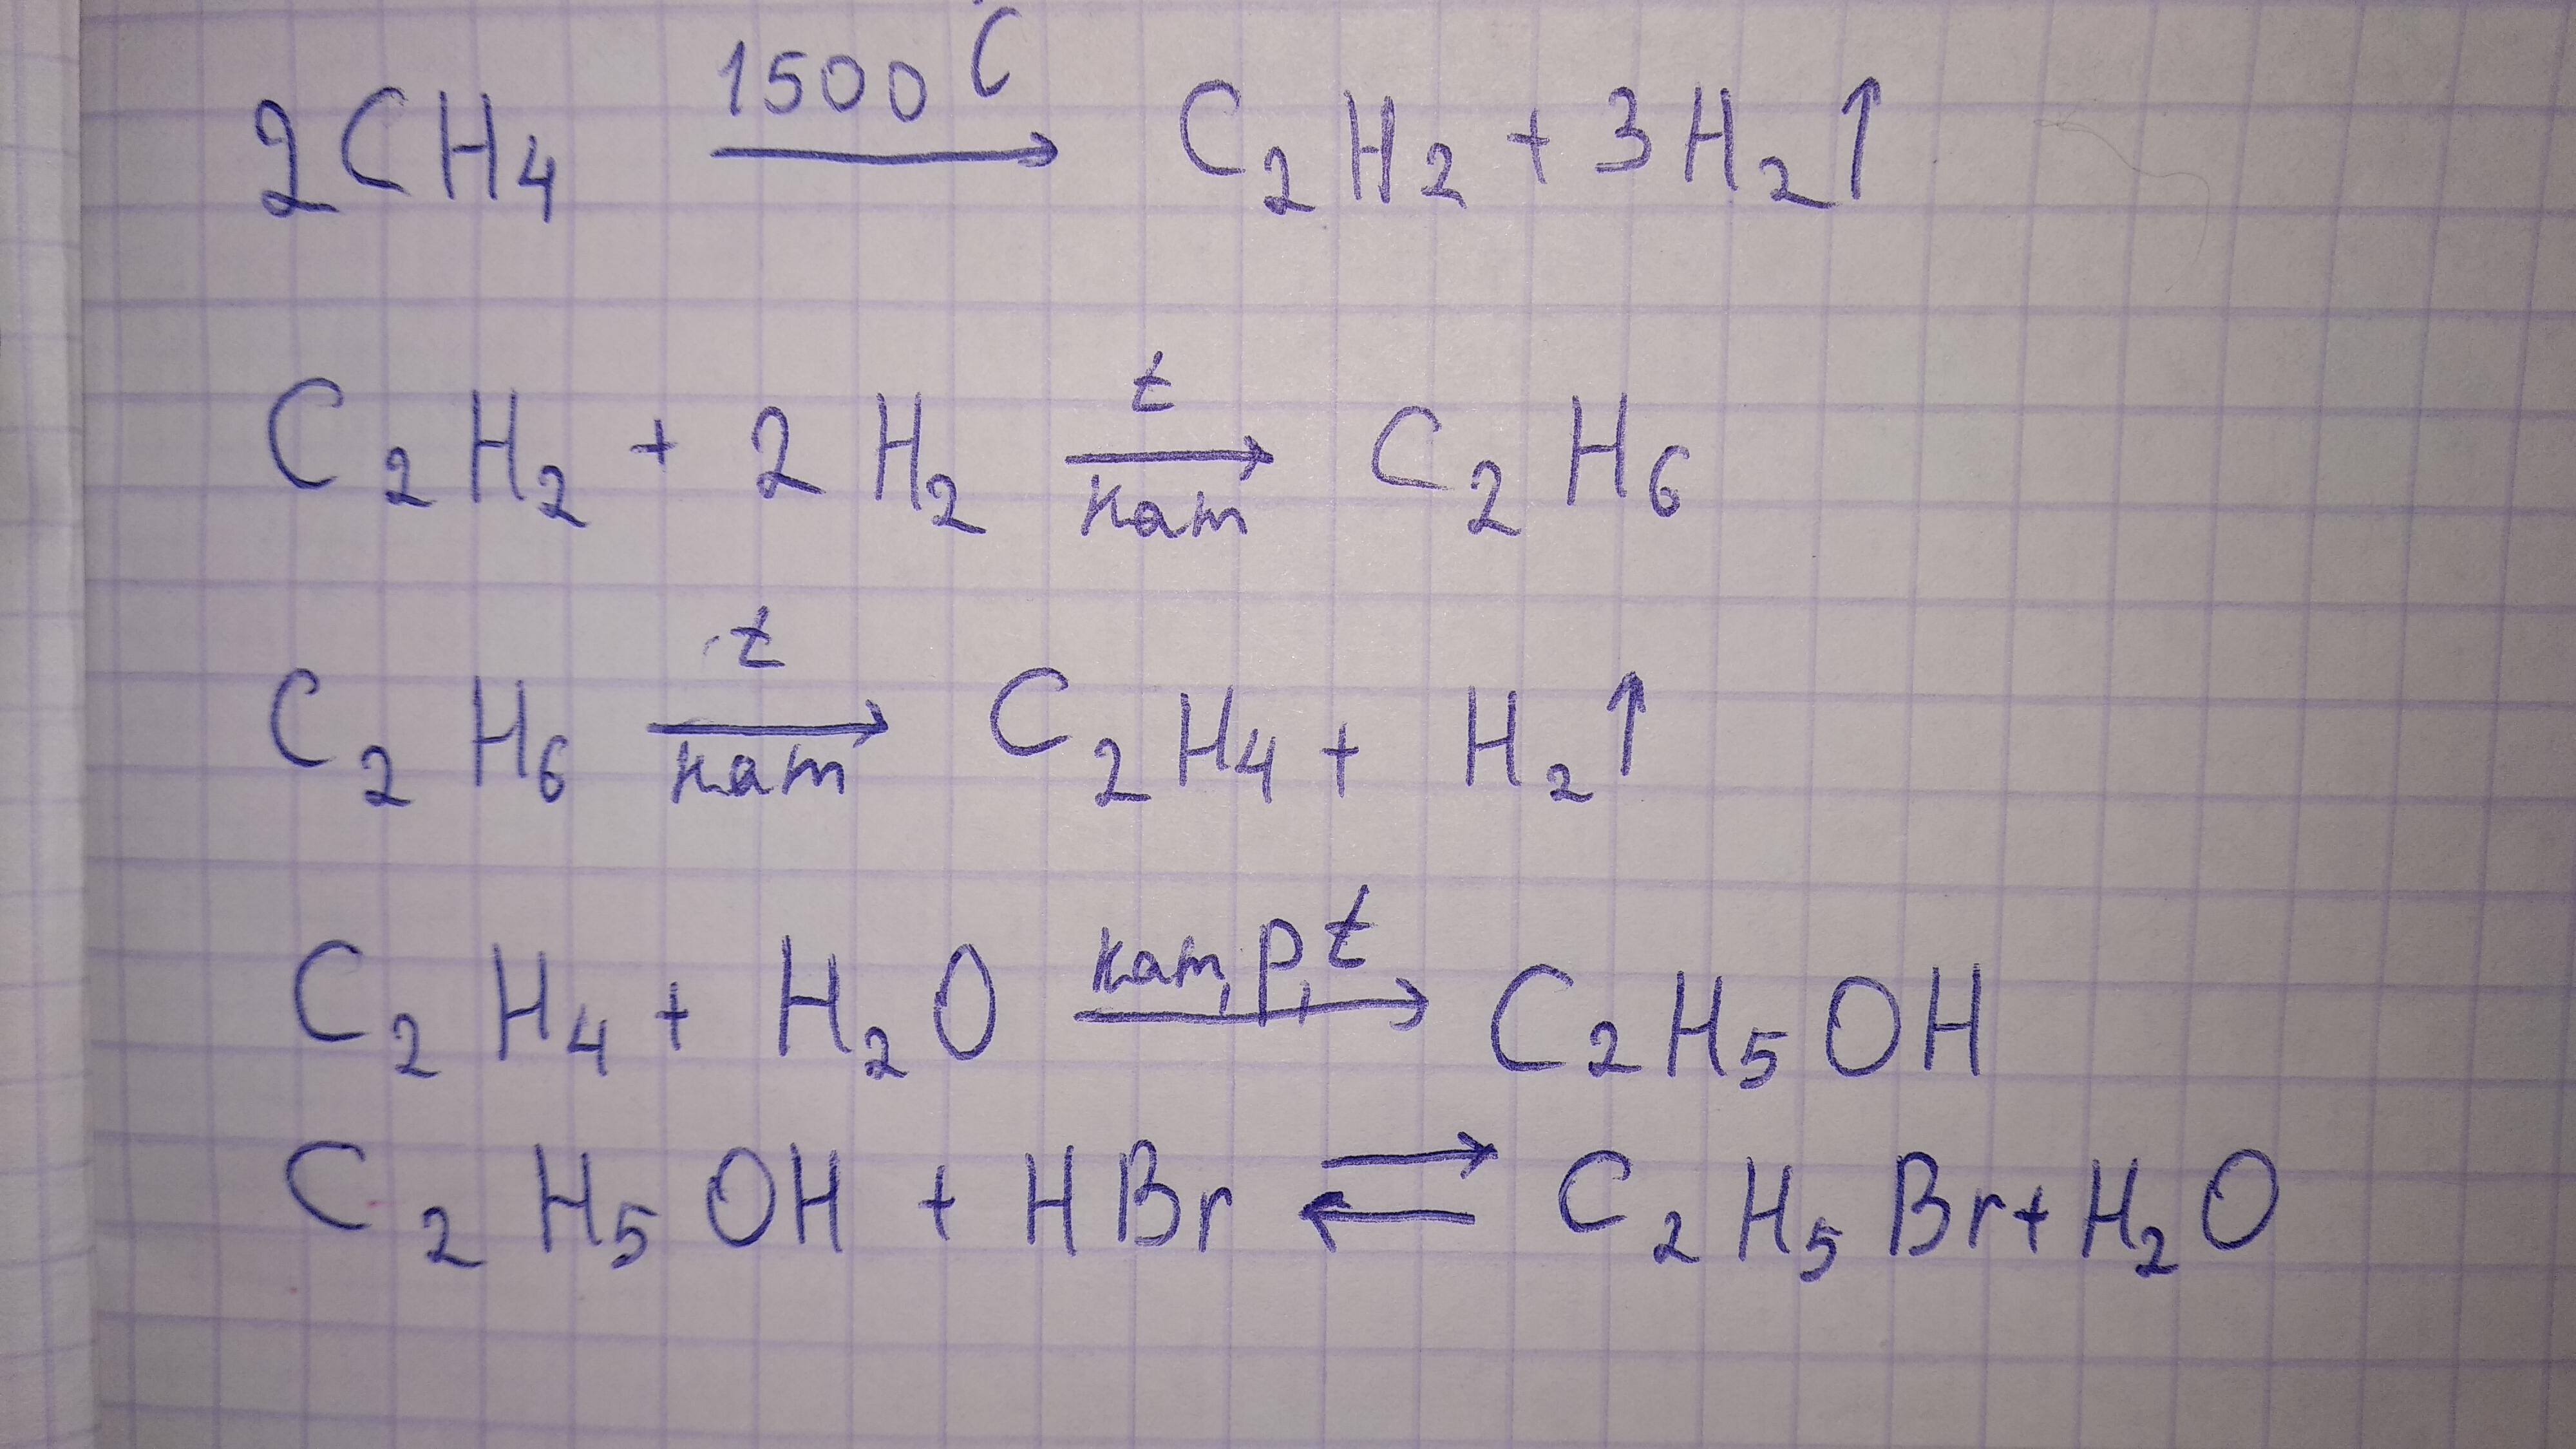 2CH₄ 1500 C → C₂H₂ + 3H₂↑
C₂H₂ + 2H₂ t → кат C₂H₆
C₂H₆ t → кат C₂H₄ + H₂↑
C₂H₄ + H₂O кат, p, t → C₂H₅OH
C₂H₅OH + HBr ⇄ C₂H₅Br + H₂O